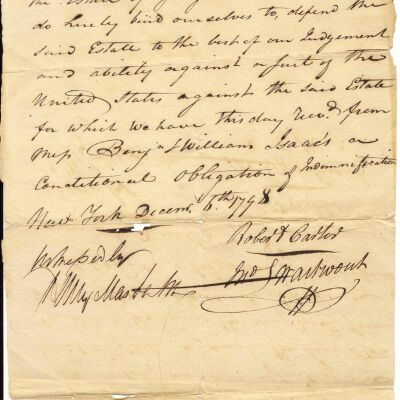 the Estate of
do hereby bind ourselves to, defend the
said Estate to the best of our Judgement
and ability against a suit of the
United States against the said Estate
for which we have this day Recd. from
Mess Benjn & William Isaacs a
Conditional Obligation of Indemnification
New York Decem. 6th 1798
Robert Carter
Jno Swartwout